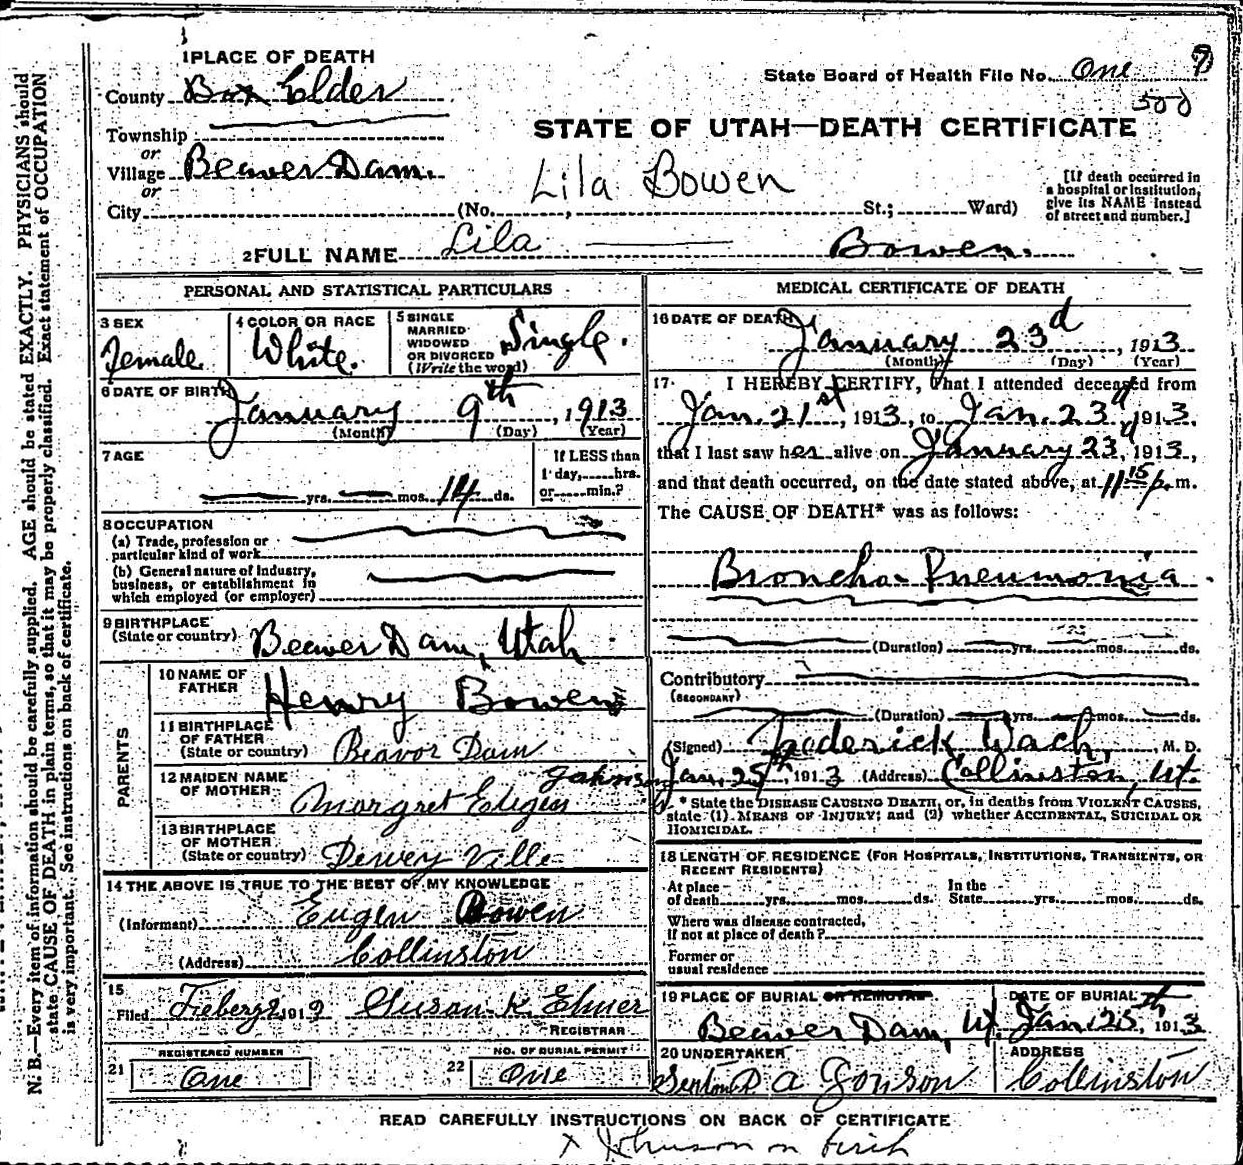 1 PLACE OF DEATH
State Board of Health File No. One
County Box Elder
Township
STATE OF UTAH—DEATH CERTIFICATE
or
Village Beaver Dam.
Lila Bowen
or
City (No. , St.; Ward)
[If death occurred in
a hospital or institution,
give its NAME instead
of street and number.]
2 FULL NAME Lila Bowen.
PERSONAL AND STATISTICAL PARTICULARS
3 SEX
Female
4 COLOR OR RACE
White.
5 SINGLE
MARRIED
WIDOWED
OR DIVORCED
(Write the word)
Single.
6 DATE OF BIRTH
January 9th, 1913
(Month) (Day) (Year)
7 AGE
yrs. mos. 14 ds.
If LESS than
1 day, hrs.
or min.?
8 OCCUPATION
(a) Trade, profession or
particular kind of work
(b) General nature of Industry,
business, or establishment in
which employed (or employer)
9 BIRTHPLACE
(State or country) Beaver Dam, Utah
PARENTS
10 NAME OF
FATHER Henry Bowen
11 BIRTHPLACE
OF FATHER
(State or country) Beavor Dam
12 MAIDEN NAME
OF MOTHER Margret
13 BIRTHPLACE
OF MOTHER
(State or country) Dewey Ville
14 THE ABOVE IS TRUE TO THE BEST OF MY KNOWLEDGE
(Informant) Eugen Bowen
(Address) Collinston
15
Filed 191 Susan K. Elmer
REGISTRAR
REGISTERED NUMBER
21 One
NO. OF BURIAL PERMIT
22 One
MEDICAL CERTIFICATE OF DEATH
16 DATE OF DEATH
January 23d, 1913
(Month) (Day) (Year)
17. I HEREBY CERTIFY, that I attended deceased from
Jan. 21st, 1913, to Jan. 23d 1913,
that I last saw her alive on January 23d, 1913,
and that death occurred, on the date stated above, at 11 15 p. m.
The CAUSE OF DEATH* was as follows:
Broncho Pneumonia.
(Duration) yrs. mos. ds.
Contributory
(SECONDARY)
(Duration) yrs. mos. ds.
(Signed) Frederick Wach, M. D.
Jan. 25th, 1913 (Address) Collinston, Ut.
* State the DISEASE CAUSING DEATH, or, in deaths from VIOLENT CAUSES,
state (1) MEANS OF INJURY; and (2) whether ACCIDENTAL, SUICIDAL OR
HOMICIDAL.
18 LENGTH OF RESIDENCE (FOR HOSPITALS, INSTITUTIONS, TRANSIENTS, OR
RECENT RESIDENTS)
At place
of death yrs. mos. ds.
In the
State yrs. mos. ds.
Where was disease contracted,
if not at place of death?
Former or
usual residence
19 PLACE OF BURIAL OR REMOVAL
Beaver Dam, Ut.
DATE OF BURIAL
Jan. 25th, 1913
20 UNDERTAKER
ADDRESS
Collinston
READ CAREFULLY INSTRUCTIONS ON BACK OF CERTIFICATE
x Johnson on birth
N. B.—Every item of information should be carefully supplied. AGE should be stated EXACTLY. PHYSICIANS should
state CAUSE OF DEATH in plain terms, so that it may be properly classified. Exact statement of OCCUPATION
is very important. See instructions on back of certificate.